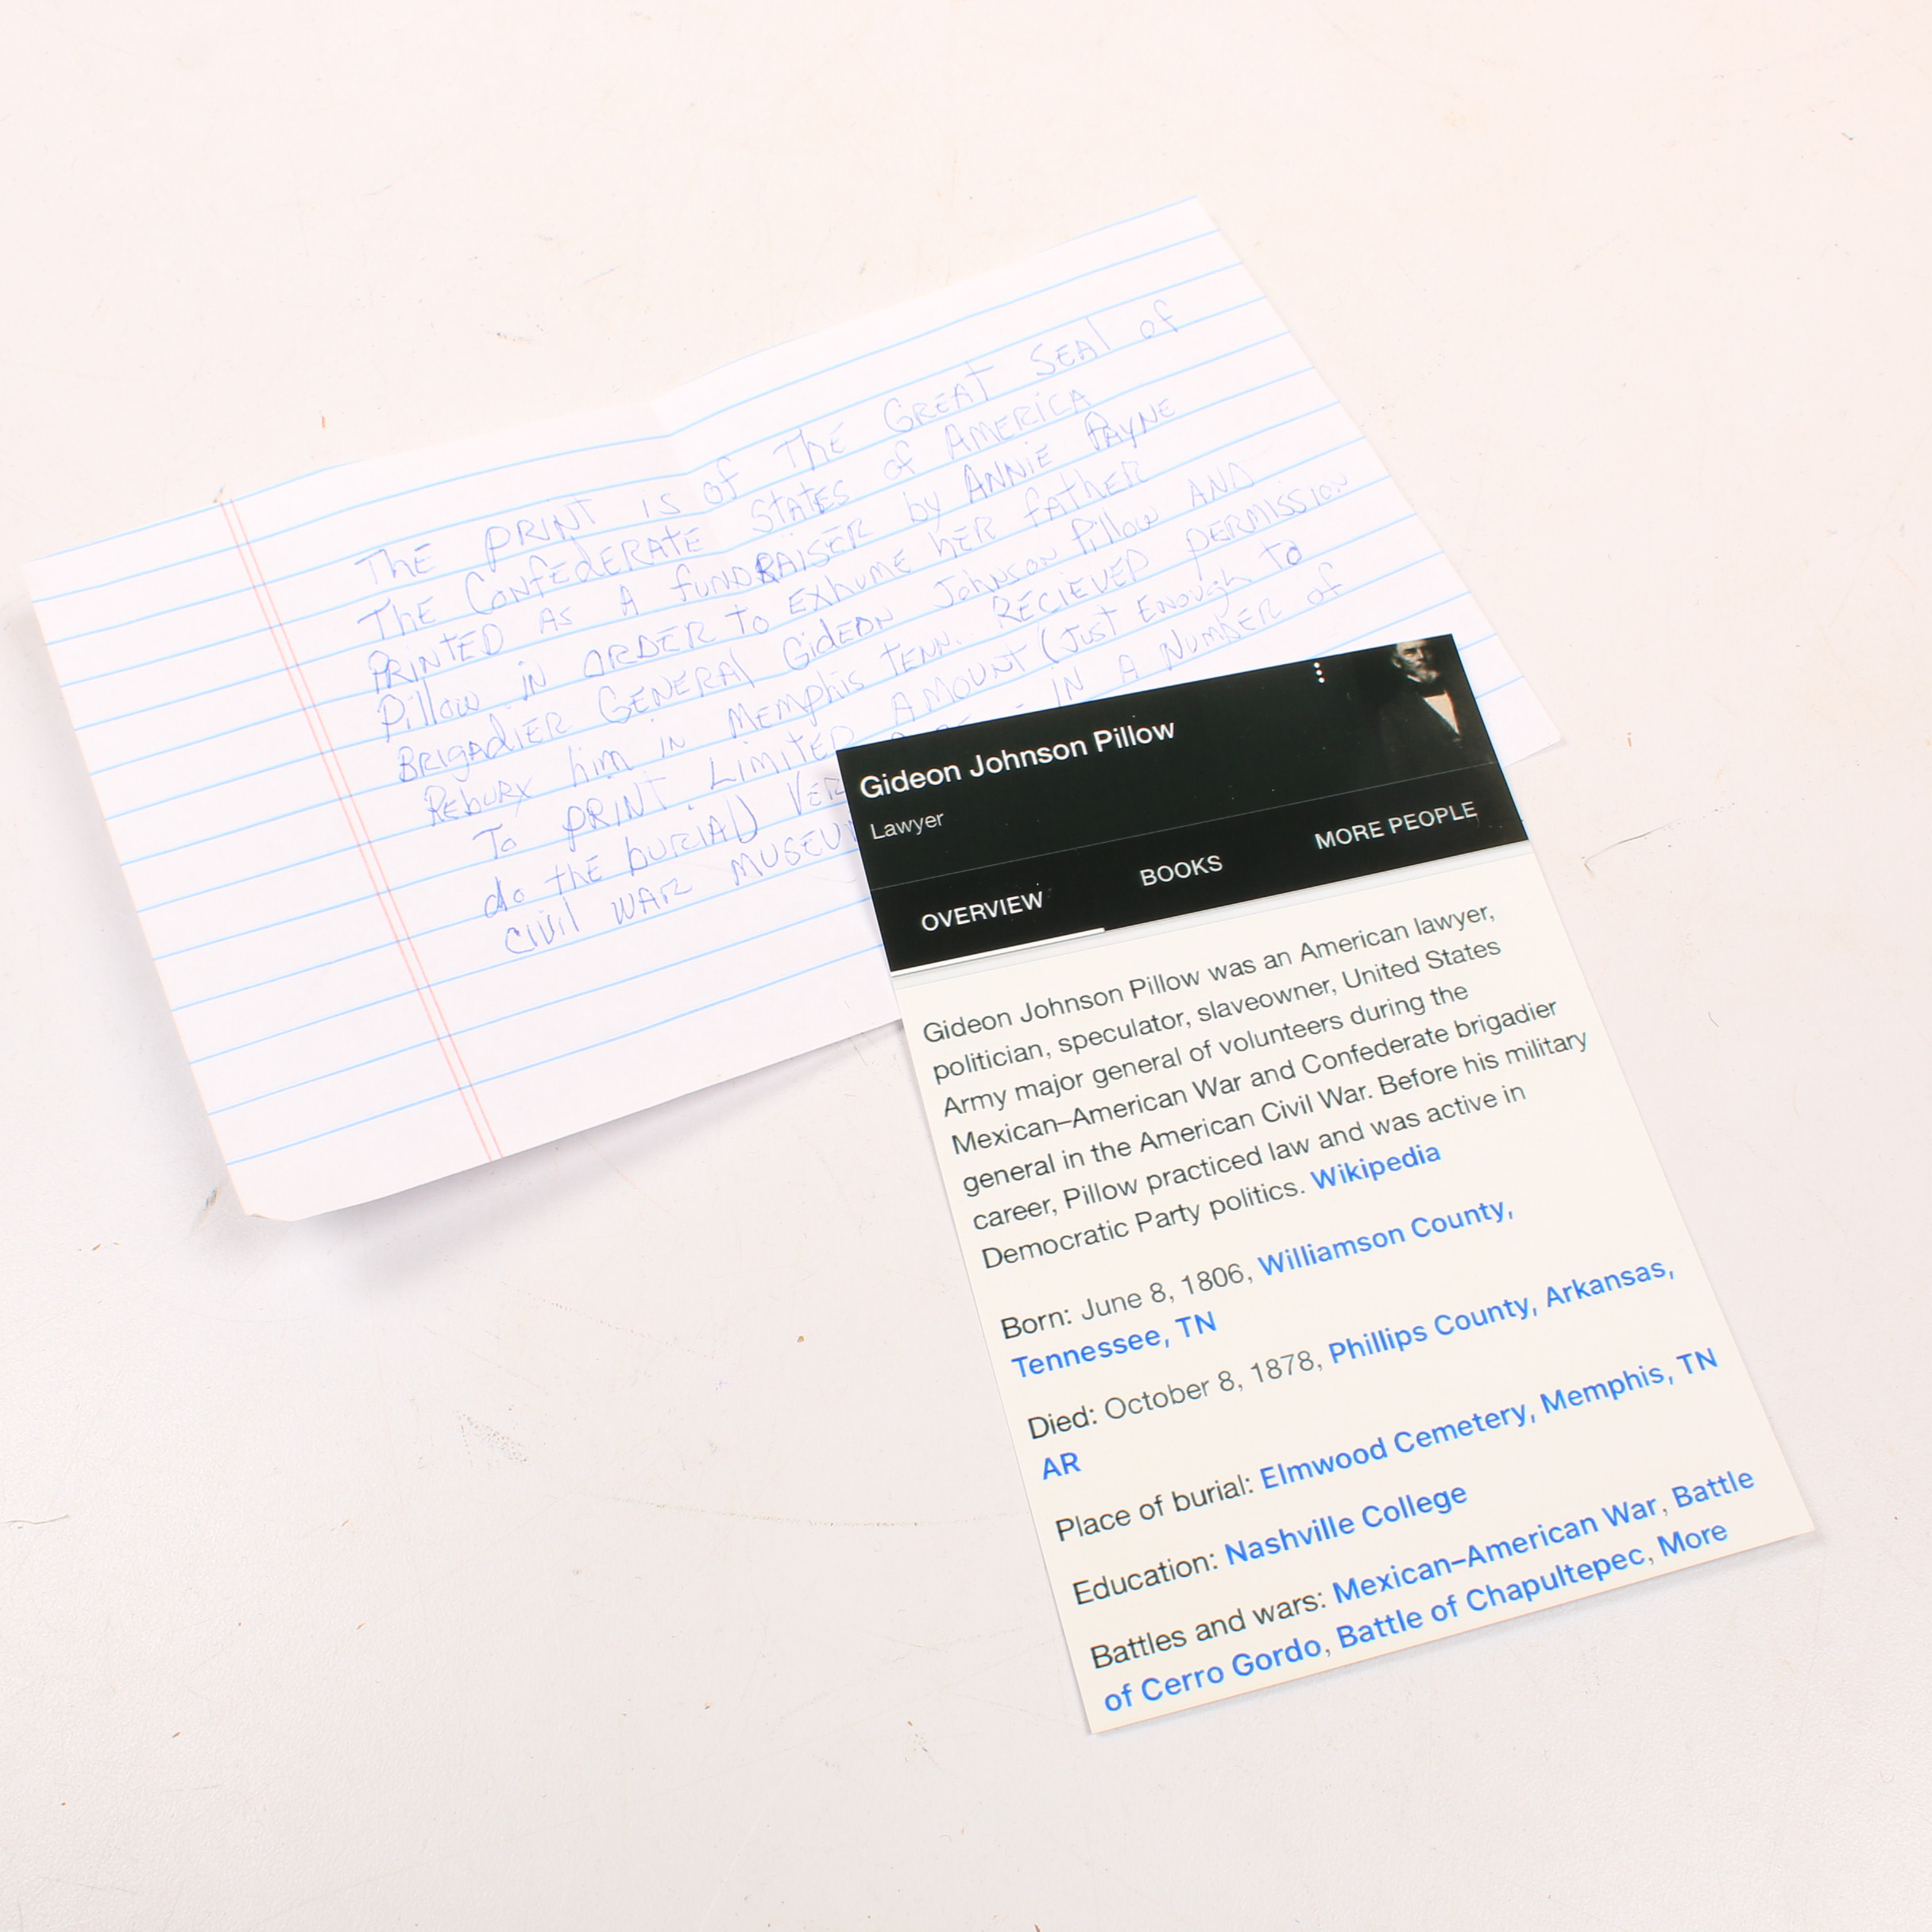 The PRINT IS of The GREAT SEAl of
The CONfEDERATE STATES of AMERICA
PRINTED AS A fUNDRAISER by ANNiE PAYNE
Pillow iN ORDER to EXHUME hER fATHER
BRigADiER GENERAl GiDEON Johnson Pillow AND
REbURY him iN MEMPhis TENN. RECIEVED PERMISSION
To PRINT. LimiTED AMOUNT (Just ENough to
do thE buRiAl) IN A NUMBER of
Civil WAR
Gideon Johnson Pillow
Lawyer
OVERVIEW BOOKS MORE PEOPLE
Gideon Johnson Pillow was an American lawyer,
politician, speculator, slaveowner, United States
Army major general of volunteers during the
Mexican–American War and Confederate brigadier
general in the American Civil War. Before his military
career, Pillow practiced law and was active in
Democratic Party politics. Wikipedia
Born: June 8, 1806, Williamson County,
Tennessee, TN
Died: October 8, 1878, Phillips County, Arkansas,
AR
Place of burial: Elmwood Cemetery, Memphis, TN
Education: Nashville College
Battles and wars: Mexican–American War, Battle
of Cerro Gordo, Battle of Chapultepec, More